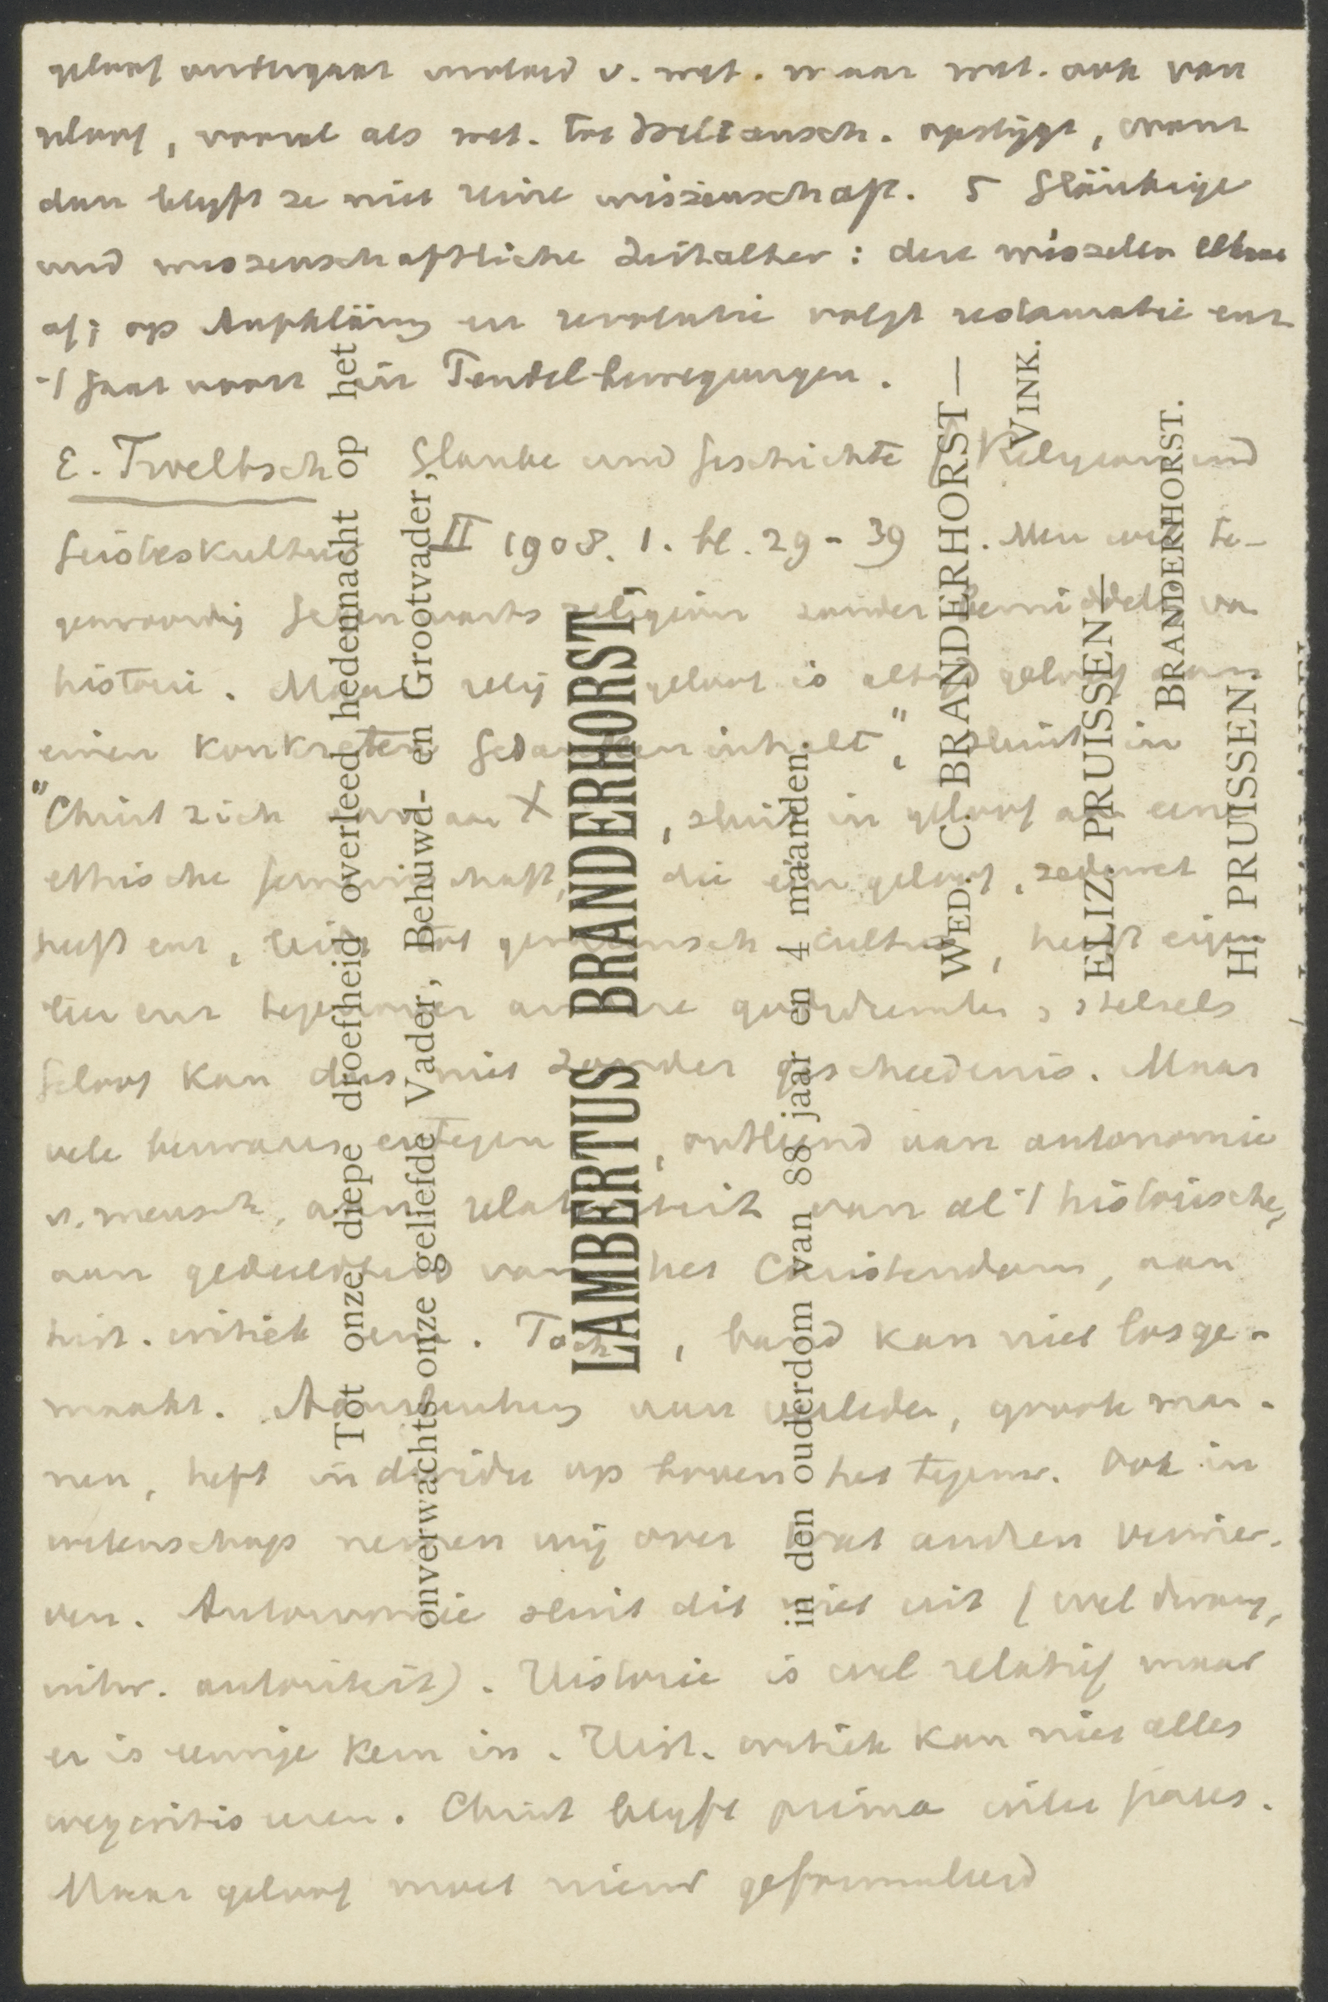 geloof ondergaat invloed v. wet. maar wet. ook van
geloof, vooral als wet. tot Weltansch. opstijgt, want
dan blijft ze niet reine wissenschaft. 5 Gläubige
und wissenschaftliche Zeitalter: deze wisselen elkaar
af; op Aufklärung en revolutie volgt restauratie enz
't gaat voort in Pendelbewegungen.
E. Troeltsch Glaube und Geschichte Religion und
Geisteskultur II 1908. 1. bl. 29-39. Men wil te-
genwoordig Gegenwarts religion zonder bemiddeling van
historie. Maar relig geloof is altijd geloof aan
einen konkreten Gedankeninhalt", sluit in
"Christ zich aan X, sluit in geloof aan eine
ethische Gemeinschaft, die een geloof, zedewet
heeft enz, leidt tot cultus, heeft eigen
enz tegenover andere godsdiensten, stelsels
Geloof kan dus niet zonder geschiedenis. Maar
vele bezwaren ertegen, ontleend aan autonomie
v. mensch, aan relativiteit van al 't historische,
aan van het Christendom, aan
hist. critiek enz. Toch, band kan niet losge-
maakt. aan verleden, groote man-
nen, heft individu op boven het tegenw. Ook in
wetenschap nemen wij over wat anderen verwier-
ven. Autonomie sluit dit niet uit (wel dwang,
uitw. autoriteit). Historie is wel relatief maar
er is eeuwige kern in. Hist. critiek kan niet alles
wegcritiseeren. Christ blijft
Maar geloof moet nieuw geformuleerd
Tot onze diepe droefheid overleed hedennacht op het
onverwachts onze geliefde Vader, Behuwd- en Grootvader,
LAMBERTUS BRANDERHORST,
in den ouderdom van 88 jaar en 4 maanden.
WED. C. BRANDERHORST—
VINK.
ELIZ. PRUISSEN—
BRANDERHORST.
H. PRUISSEN.